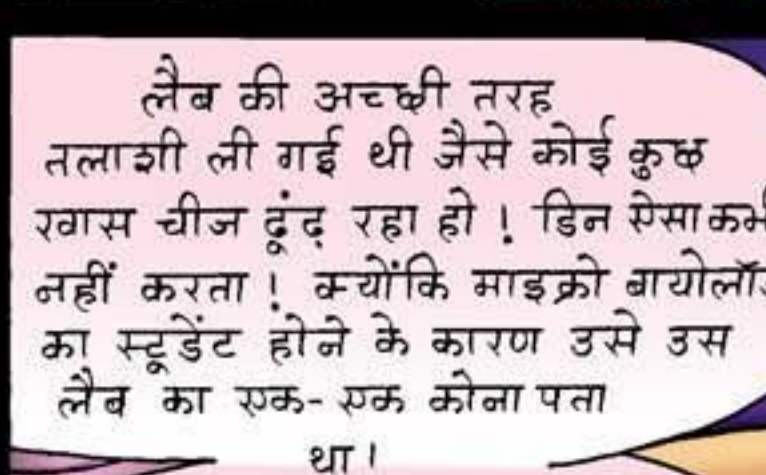 लैब की अच्छी तरह
तलाशी ली गई थी जैसे कोई कुछ
खास चीज ढूंढ़ रहा हो! डिन ऐसा कभी
नहीं करता! क्योंकि माइक्रो बायोलॉ
का स्टूडेंट होने के कारण उसे उस
लैब का एक-एक कोना पता
था।